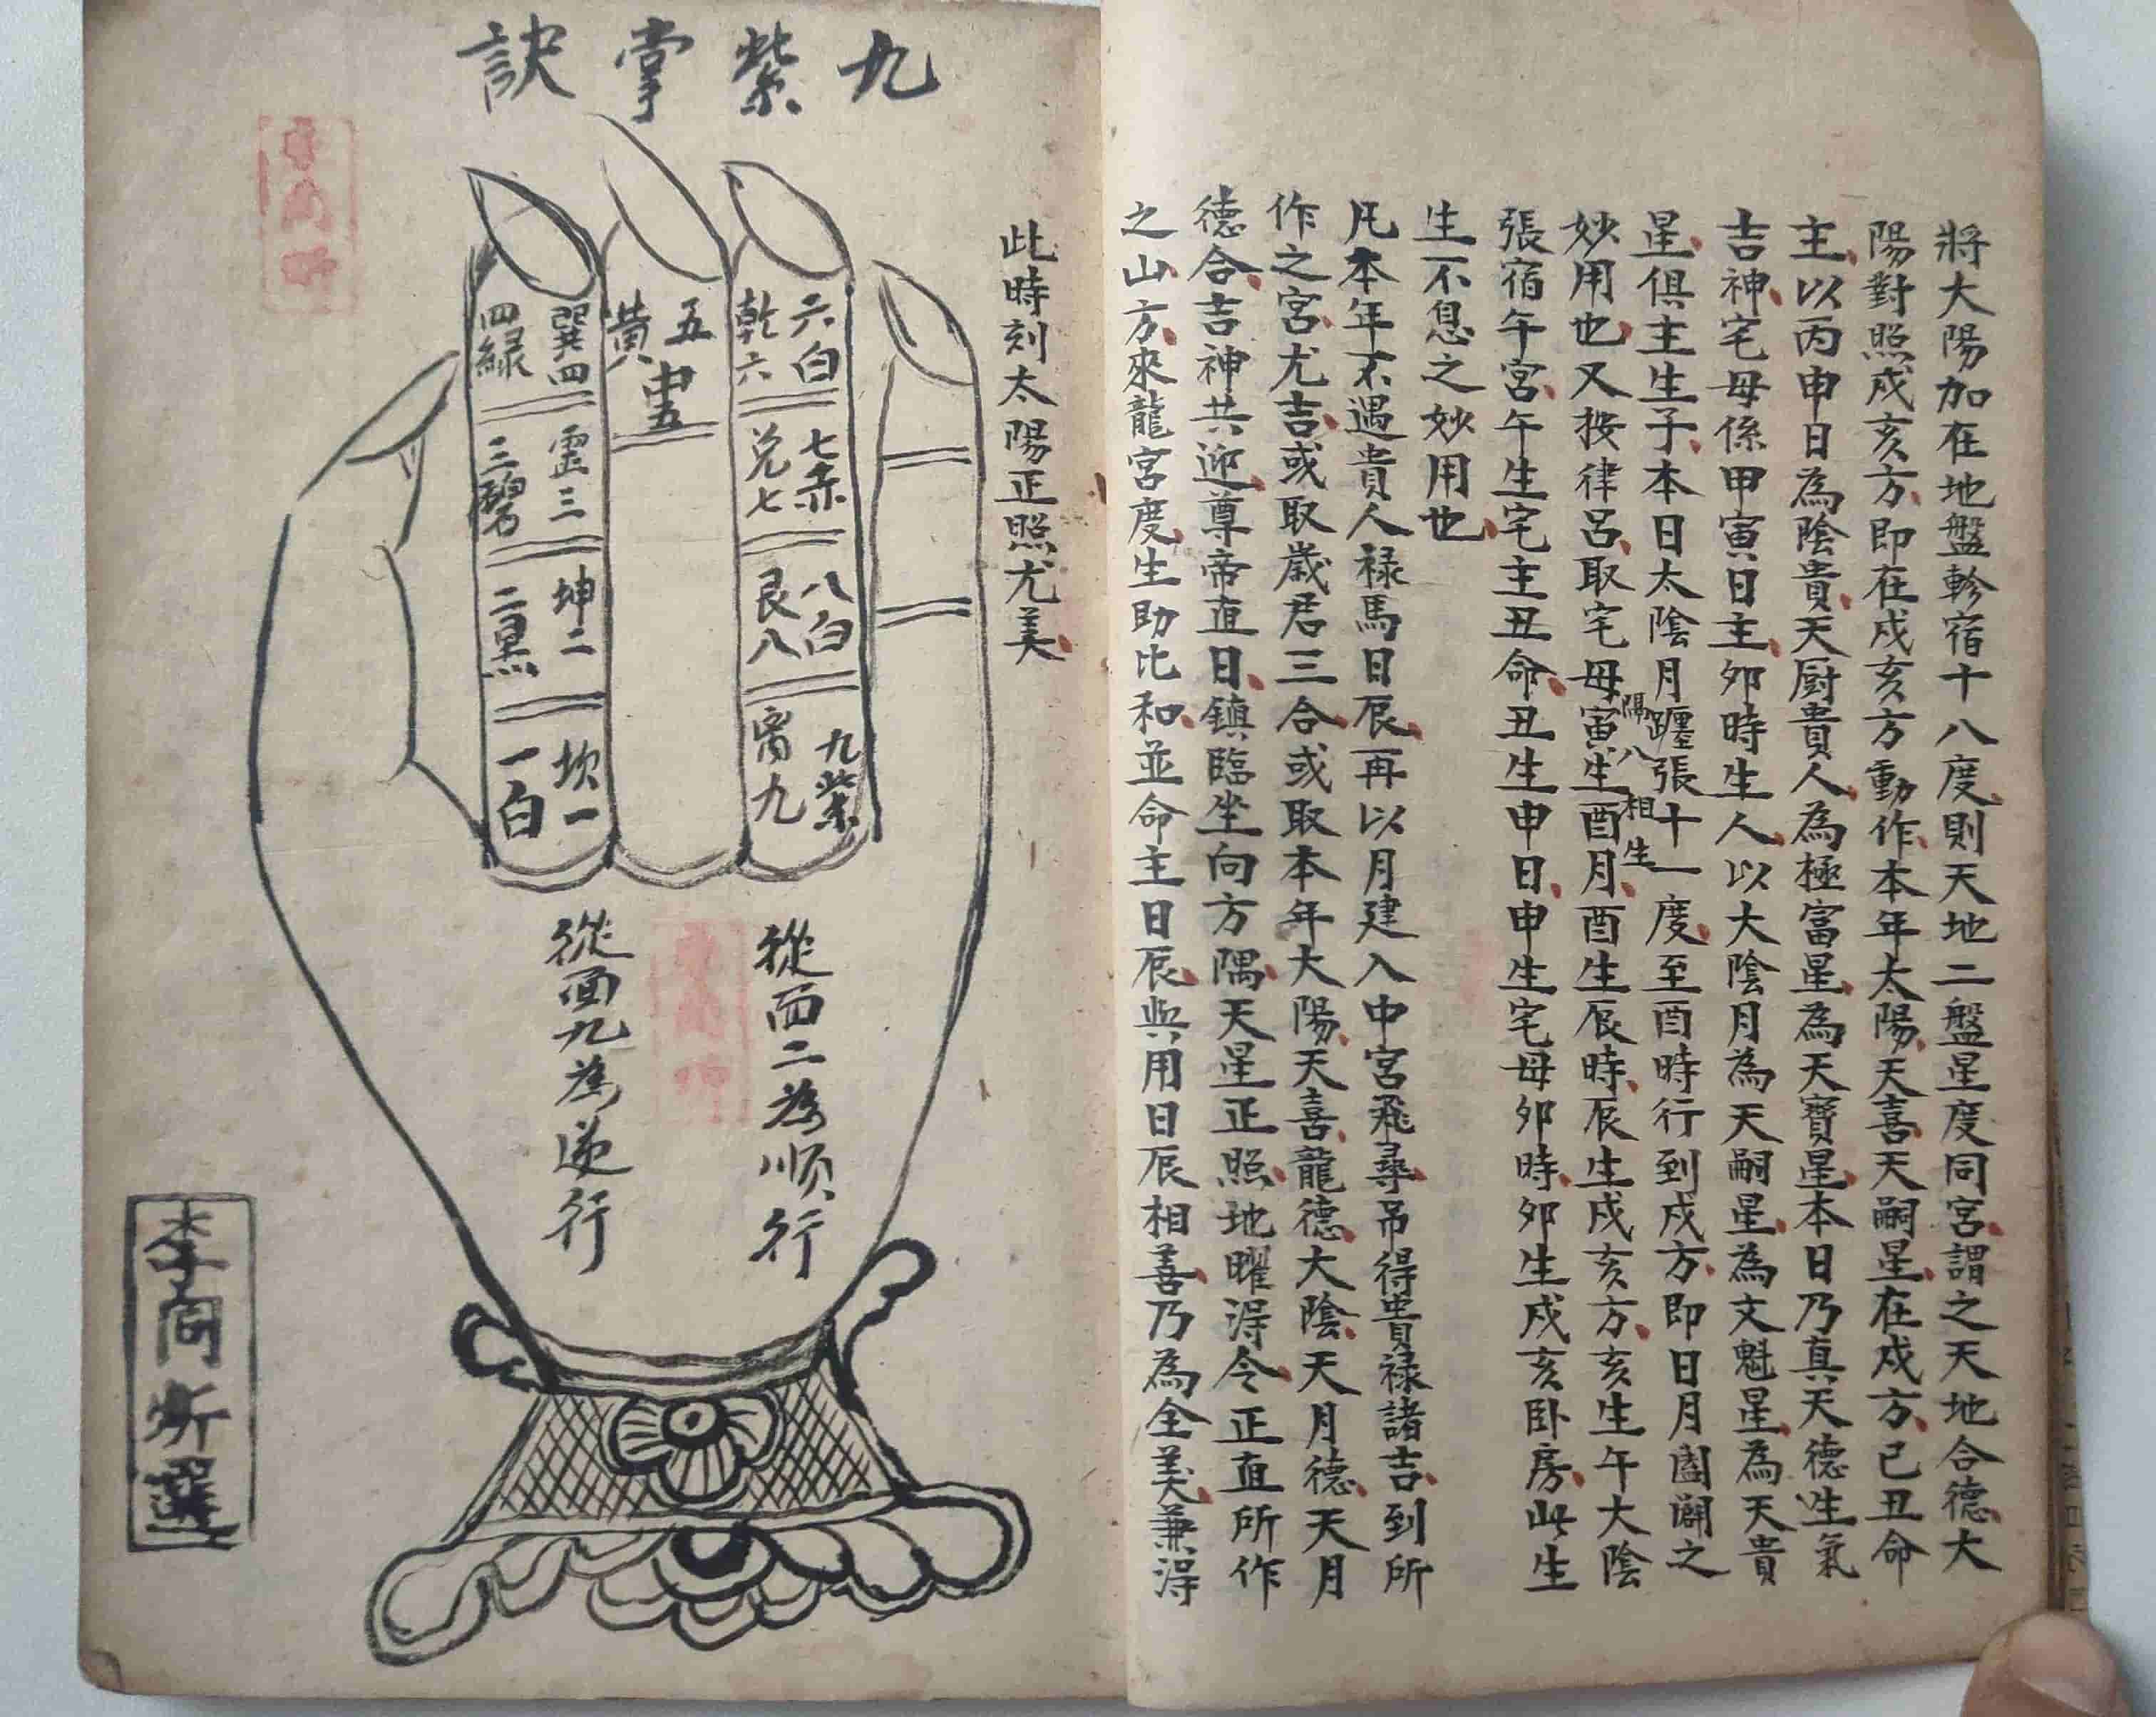 將大陽加在地盤軫宿十八度則天地二盤星度同宮謂之天地合德大
陽對照戍亥方即在戍亥方動作本年太陽天喜天嗣星在戍方己丑命
主以丙申日為陰貴天厨貴人為極富星為天寶星本日乃真天德生氣
吉神宅母係甲寅日主夘時生人以大陰月為天嗣星為文魁星為天貴
星俱主生子本日太陰月躔張十一度至酉時行到戍方即日月闔闢之
妙用也又按律呂取宅母寅生酉月酉生辰時辰生戍亥方亥生午大陰
隔八相生
張宿午宮午生宅主丑命丑生申日申生宅母夘時夘生戍亥卧房此生
生不息之妙用也
凡本年不遇貴人禄馬日辰再以月建入中宮飛尋吊得貴禄諸吉到所
作之宮尤吉或取歲君三合或取本年大陽天喜龍德大陰天月德天月
德合吉神共迎尊帝直日鎮臨坐向方隅天星正照地曜淂令正直所作
之山方來龍宮度生助比和並命主日辰與用日辰相善乃為全美兼淂
此時刻太陽正照尤美
九紫掌訣
六白
乾六
七赤
兑七
八白
艮八
九紫
离九
五黄
中五
巽四
四緑
震三
三碧
坤二
二黑
坎一
一白
從而二為順行
從面九為逆行
李同斯選